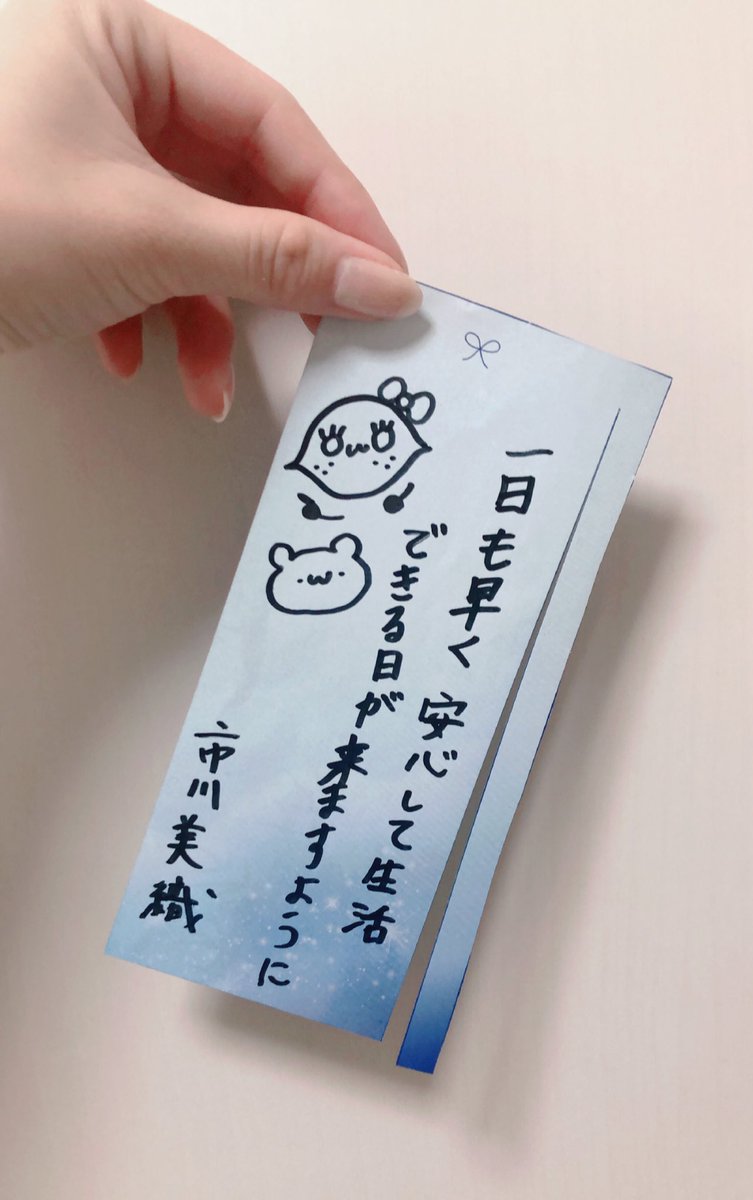 一日も早く 安心して生活
できる日が来ますように
市川美織